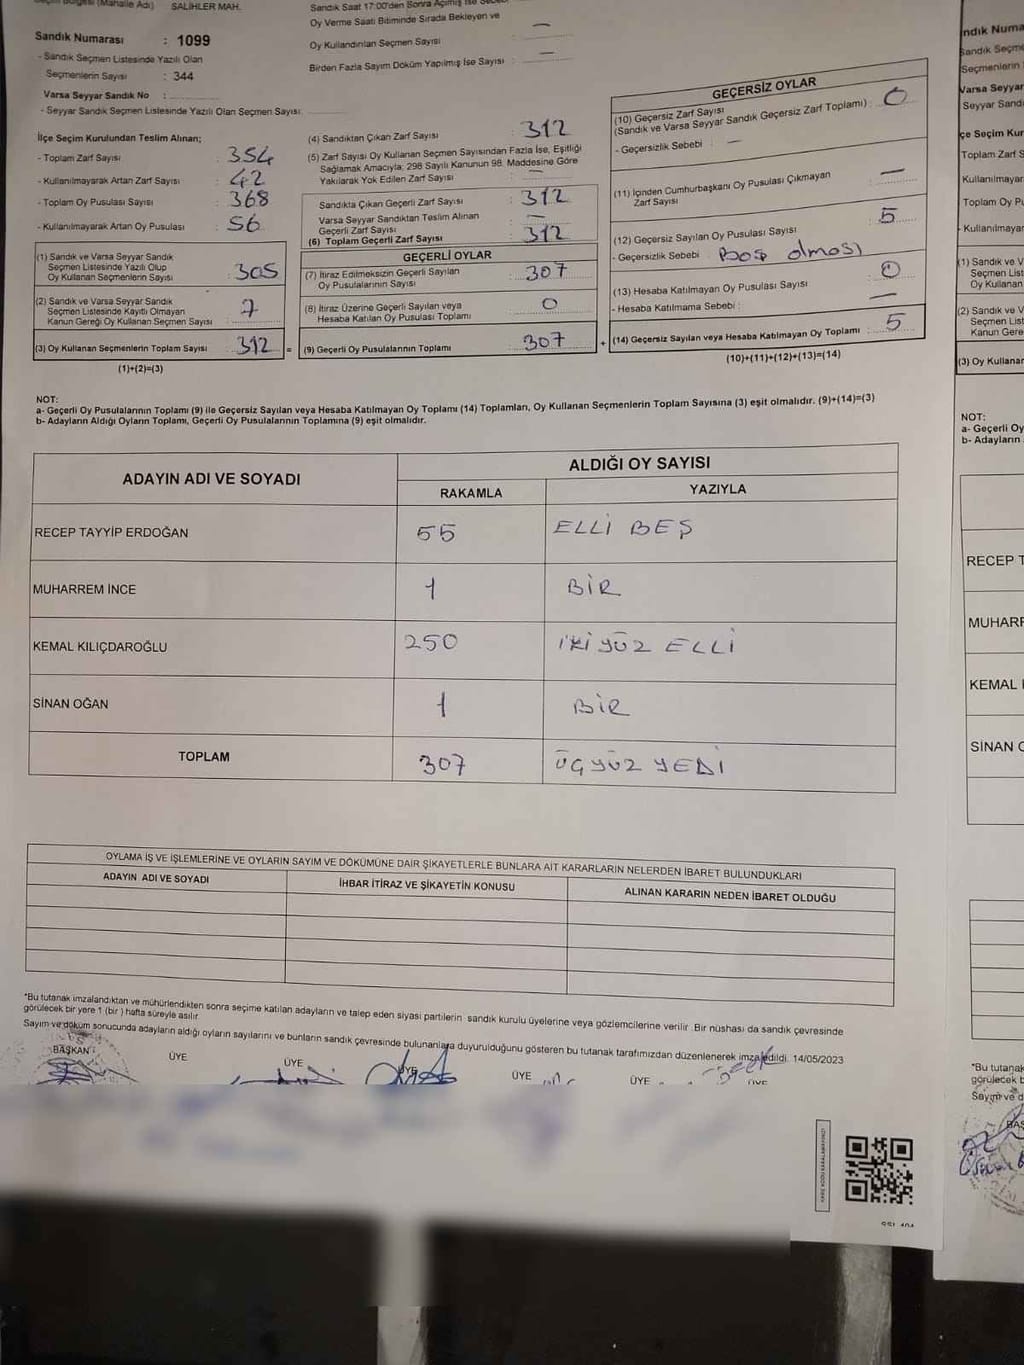 Seçim Bölgesi (Mahalle Adı) SALİHLER MAH.
Sandık Numarası : 1099
- Sandık Seçmen Listesinde Yazılı Olan
Seçmenlerin Sayısı : 344
Varsa Seyyar Sandık No :
- Seyyar Sandık Seçmen Listesinde Yazılı Olan Seçmen Sayısı:
İlçe Seçim Kurulundan Teslim Alınan;
- Toplam Zarf Sayısı : 354
- Kullanılmayarak Artan Zarf Sayısı : 42
- Toplam Oy Pusulası Sayısı : 368
- Kullanılmayarak Artan Oy Pusulası : 56
(1) Sandık ve Varsa Seyyar Sandık
Seçmen Listesinde Yazılı Olup
Oy Kullanan Seçmenlerin Sayısı : 305
(2) Sandık ve Varsa Seyyar Sandık
Seçmen Listesinde Kayıtlı Olmayan
Kanun Gereği Oy Kullanan Seçmen Sayısı : 7
(3) Oy Kullanan Seçmenlerin Toplam Sayısı : 312 =
(1)+(2)=(3)
Sandık Saat 17:00'den Sonra Açılmış İse Sebebi
Oy Verme Saati Bitiminde Sırada Bekleyen ve
Oy Kullandırılan Seçmen Sayısı : —
Birden Fazla Sayım Döküm Yapılmış İse Sayısı : —
(4) Sandıktan Çıkan Zarf Sayısı : 312
(5) Zarf Sayısı Oy Kullanan Seçmen Sayısından Fazla İse, Eşitliği
Sağlamak Amacıyla; 298 Sayılı Kanunun 98. Maddesine Göre
Yakılarak Yok Edilen Zarf Sayısı : —
Sandıkta Çıkan Geçerli Zarf Sayısı : 312
Varsa Seyyar Sandıktan Teslim Alınan
Geçerli Zarf Sayısı : —
(6) Toplam Geçerli Zarf Sayısı : 312
GEÇERLİ OYLAR
(7) İtiraz Edilmeksizin Geçerli Sayılan
Oy Pusulalarının Sayısı : 307
(8) İtiraz Üzerine Geçerli Sayılan veya
Hesaba Katılan Oy Pusulası Toplamı : 0
(9) Geçerli Oy Pusulalarının Toplamı : 307 +
GEÇERSİZ OYLAR
(10) Geçersiz Zarf Sayısı
(Sandık ve Varsa Seyyar Sandık Geçersiz Zarf Toplamı) : 0
- Geçersizlik Sebebi : —
(11) İçinden Cumhurbaşkanı Oy Pusulası Çıkmayan
Zarf Sayısı : —
(12) Geçersiz Sayılan Oy Pusulası Sayısı : 5
- Geçersizlik Sebebi : Boş olması
(13) Hesaba Katılmayan Oy Pusulası Sayısı : 0
- Hesaba Katılmama Sebebi : —
(14) Geçersiz Sayılan veya Hesaba Katılmayan Oy Toplamı : 5
(10)+(11)+(12)+(13)=(14)
NOT:
a- Geçerli Oy Pusulalarının Toplamı (9) ile Geçersiz Sayılan veya Hesaba Katılmayan Oy Toplamı (14) Toplamları, Oy Kullanan Seçmenlerin Toplam Sayısına (3) eşit olmalıdır. (9)+(14)=(3)
b- Adayların Aldığı Oyların Toplamı, Geçerli Oy Pusulalarının Toplamına (9) eşit olmalıdır.
ADAYIN ADI VE SOYADI
ALDIĞI OY SAYISI
RAKAMLA YAZIYLA
RECEP TAYYİP ERDOĞAN 55 ELLİ BEŞ
MUHARREM İNCE 1 BİR
KEMAL KILIÇDAROĞLU 250 İKİ YÜZ ELLİ
SİNAN OĞAN 1 BİR
TOPLAM 307 ÜÇ YÜZ YEDİ
OYLAMA İŞ VE İŞLEMLERİNE VE OYLARIN SAYIM VE DÖKÜMÜNE DAİR ŞİKAYETLERLE BUNLARA AİT KARARLARIN NELERDEN İBARET BULUNDUKLARI
ADAYIN ADI VE SOYADI İHBAR İTİRAZ VE ŞİKAYETİN KONUSU ALINAN KARARIN NEDEN İBARET OLDUĞU
*Bu tutanak imzalandıktan ve mühürlendikten sonra seçime katılan adayların ve talep eden siyasi partilerin sandık kurulu üyelerine veya gözlemcilerine verilir. Bir nüshası da sandık çevresinde
görülecek bir yere 1 (bir) hafta süreyle asılır.
Sayım ve döküm sonucunda adayların aldığı oyların sayılarını ve bunların sandık çevresinde bulunanlara duyurulduğunu gösteren bu tutanak tarafımızdan düzenlenerek imza edildi. 14/05/2023
BAŞKAN ÜYE ÜYE ÜYE ÜYE ÜYE ÜYE
Sandık Numa
Sandık Seçme
Seçmenlerin
Varsa Seyyar
Seyyar Sandı
İlçe Seçim Kur
Toplam Zarf S
Kullanılmayar
Toplam Oy Pu
- Kullanılmayar
(1) Sandık ve V
Seçmen Lis
Oy Kullanan
(2) Sandık ve V
Seçmen List
Kanun Gere
(3) Oy Kullanar
NOT:
a- Geçerli Oy
b- Adayların
RECEP T
MUHARR
KEMAL
SİNAN O
*Bu tutanak
görülecek b
Sayım ve d
BAŞ